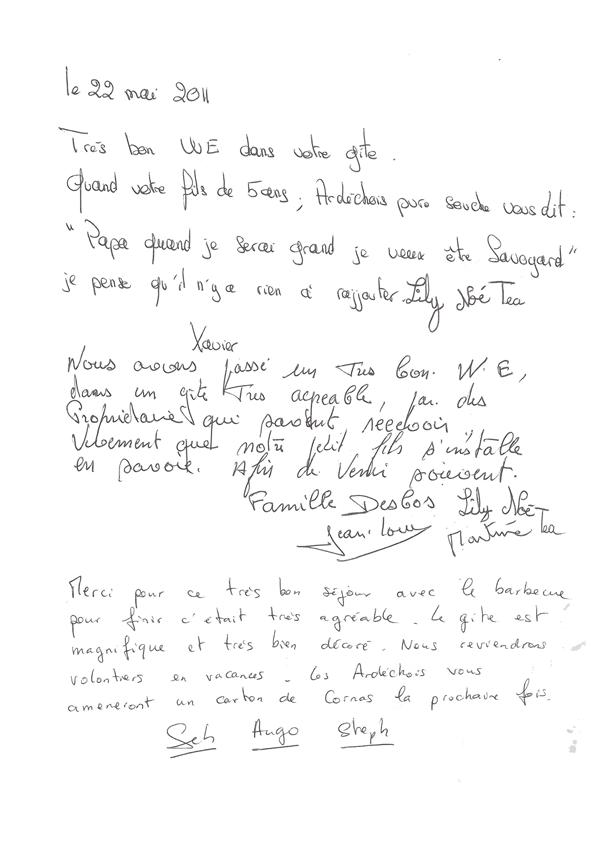 le 22 mai 2011
Très bon WE dans votre gîte.
Quand votre fils de 5ans, Ardéchois pure souche vous dit :
"Papa quand je serai grand je veux être Savoyard"
je pense qu'il n'y a rien à rajjouter. Lily Noé Tea
Xavier
Nous avons passé un Très bon. W.E,
dans un gîte Très agréable, par des
Propriétaires qui savent recevoir
Vivement que notre petit fils s'installe
en savoie. Afin de Venir souvent.
Famille Desbos Lily Noé
Jean-Lou Martine Tea
Merci pour ce très bon séjour avec le barbecue
pour finir c'était très agréable. Le gîte est
magnifique et très bien décoré. Nous reviendrons
volontiers en vacances. Les Ardéchois vous
amèneront un carton de Cornas la prochaine fois.
Seb Augo Steph